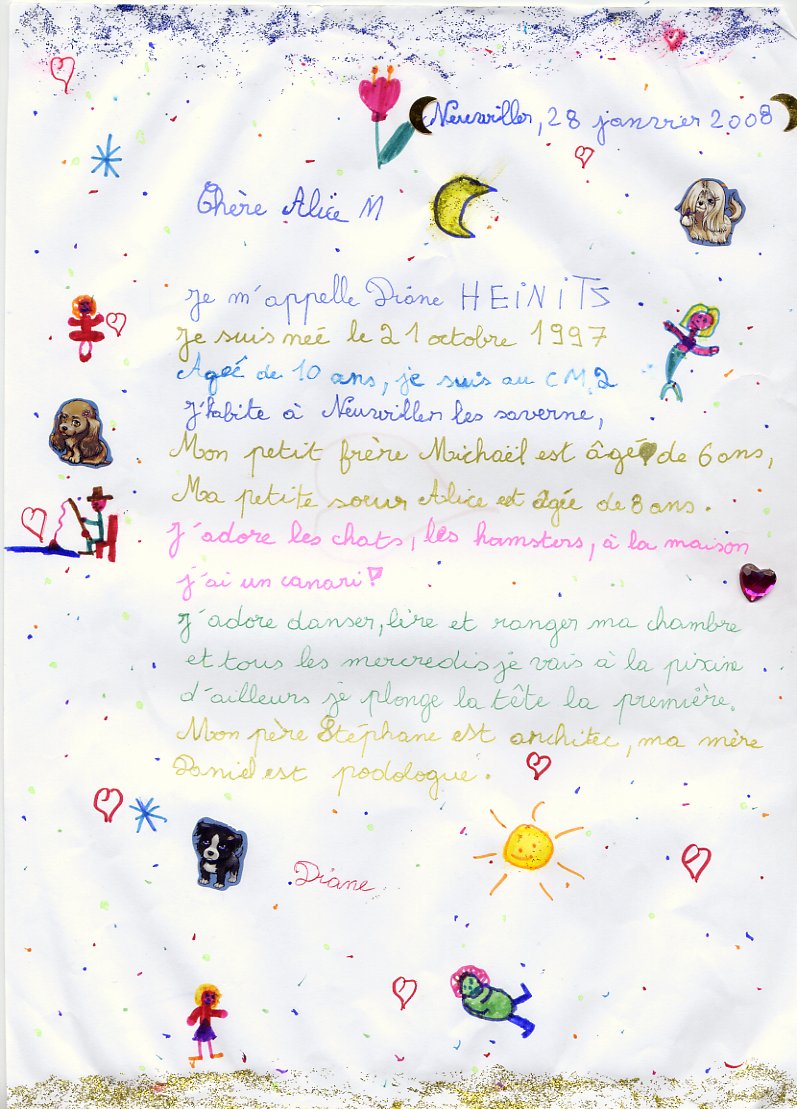 Neuwiller, 28 janvier 2008
Chère Alice M
Je m'appelle Diane HEiNiTS
Je suis née le 21 octobre 1997
Ageé de 10 ans, je suis au CM2
J'habite à Neuwiller les saverne,
Mon petit frère Michaël est âgé de 6 ans,
Ma petite sœur Alice est âgée de 8 ans.
J'adore les chats, les hamsters, à la maison
j'ai un canari !
J'adore danser, lire et ranger ma chambre
et tous les mercredis je vais à la pixine
d'ailleurs je plonge la tête la première.
Mon père Stéphane est architec, ma mère
Daniel est podologue.
Diane